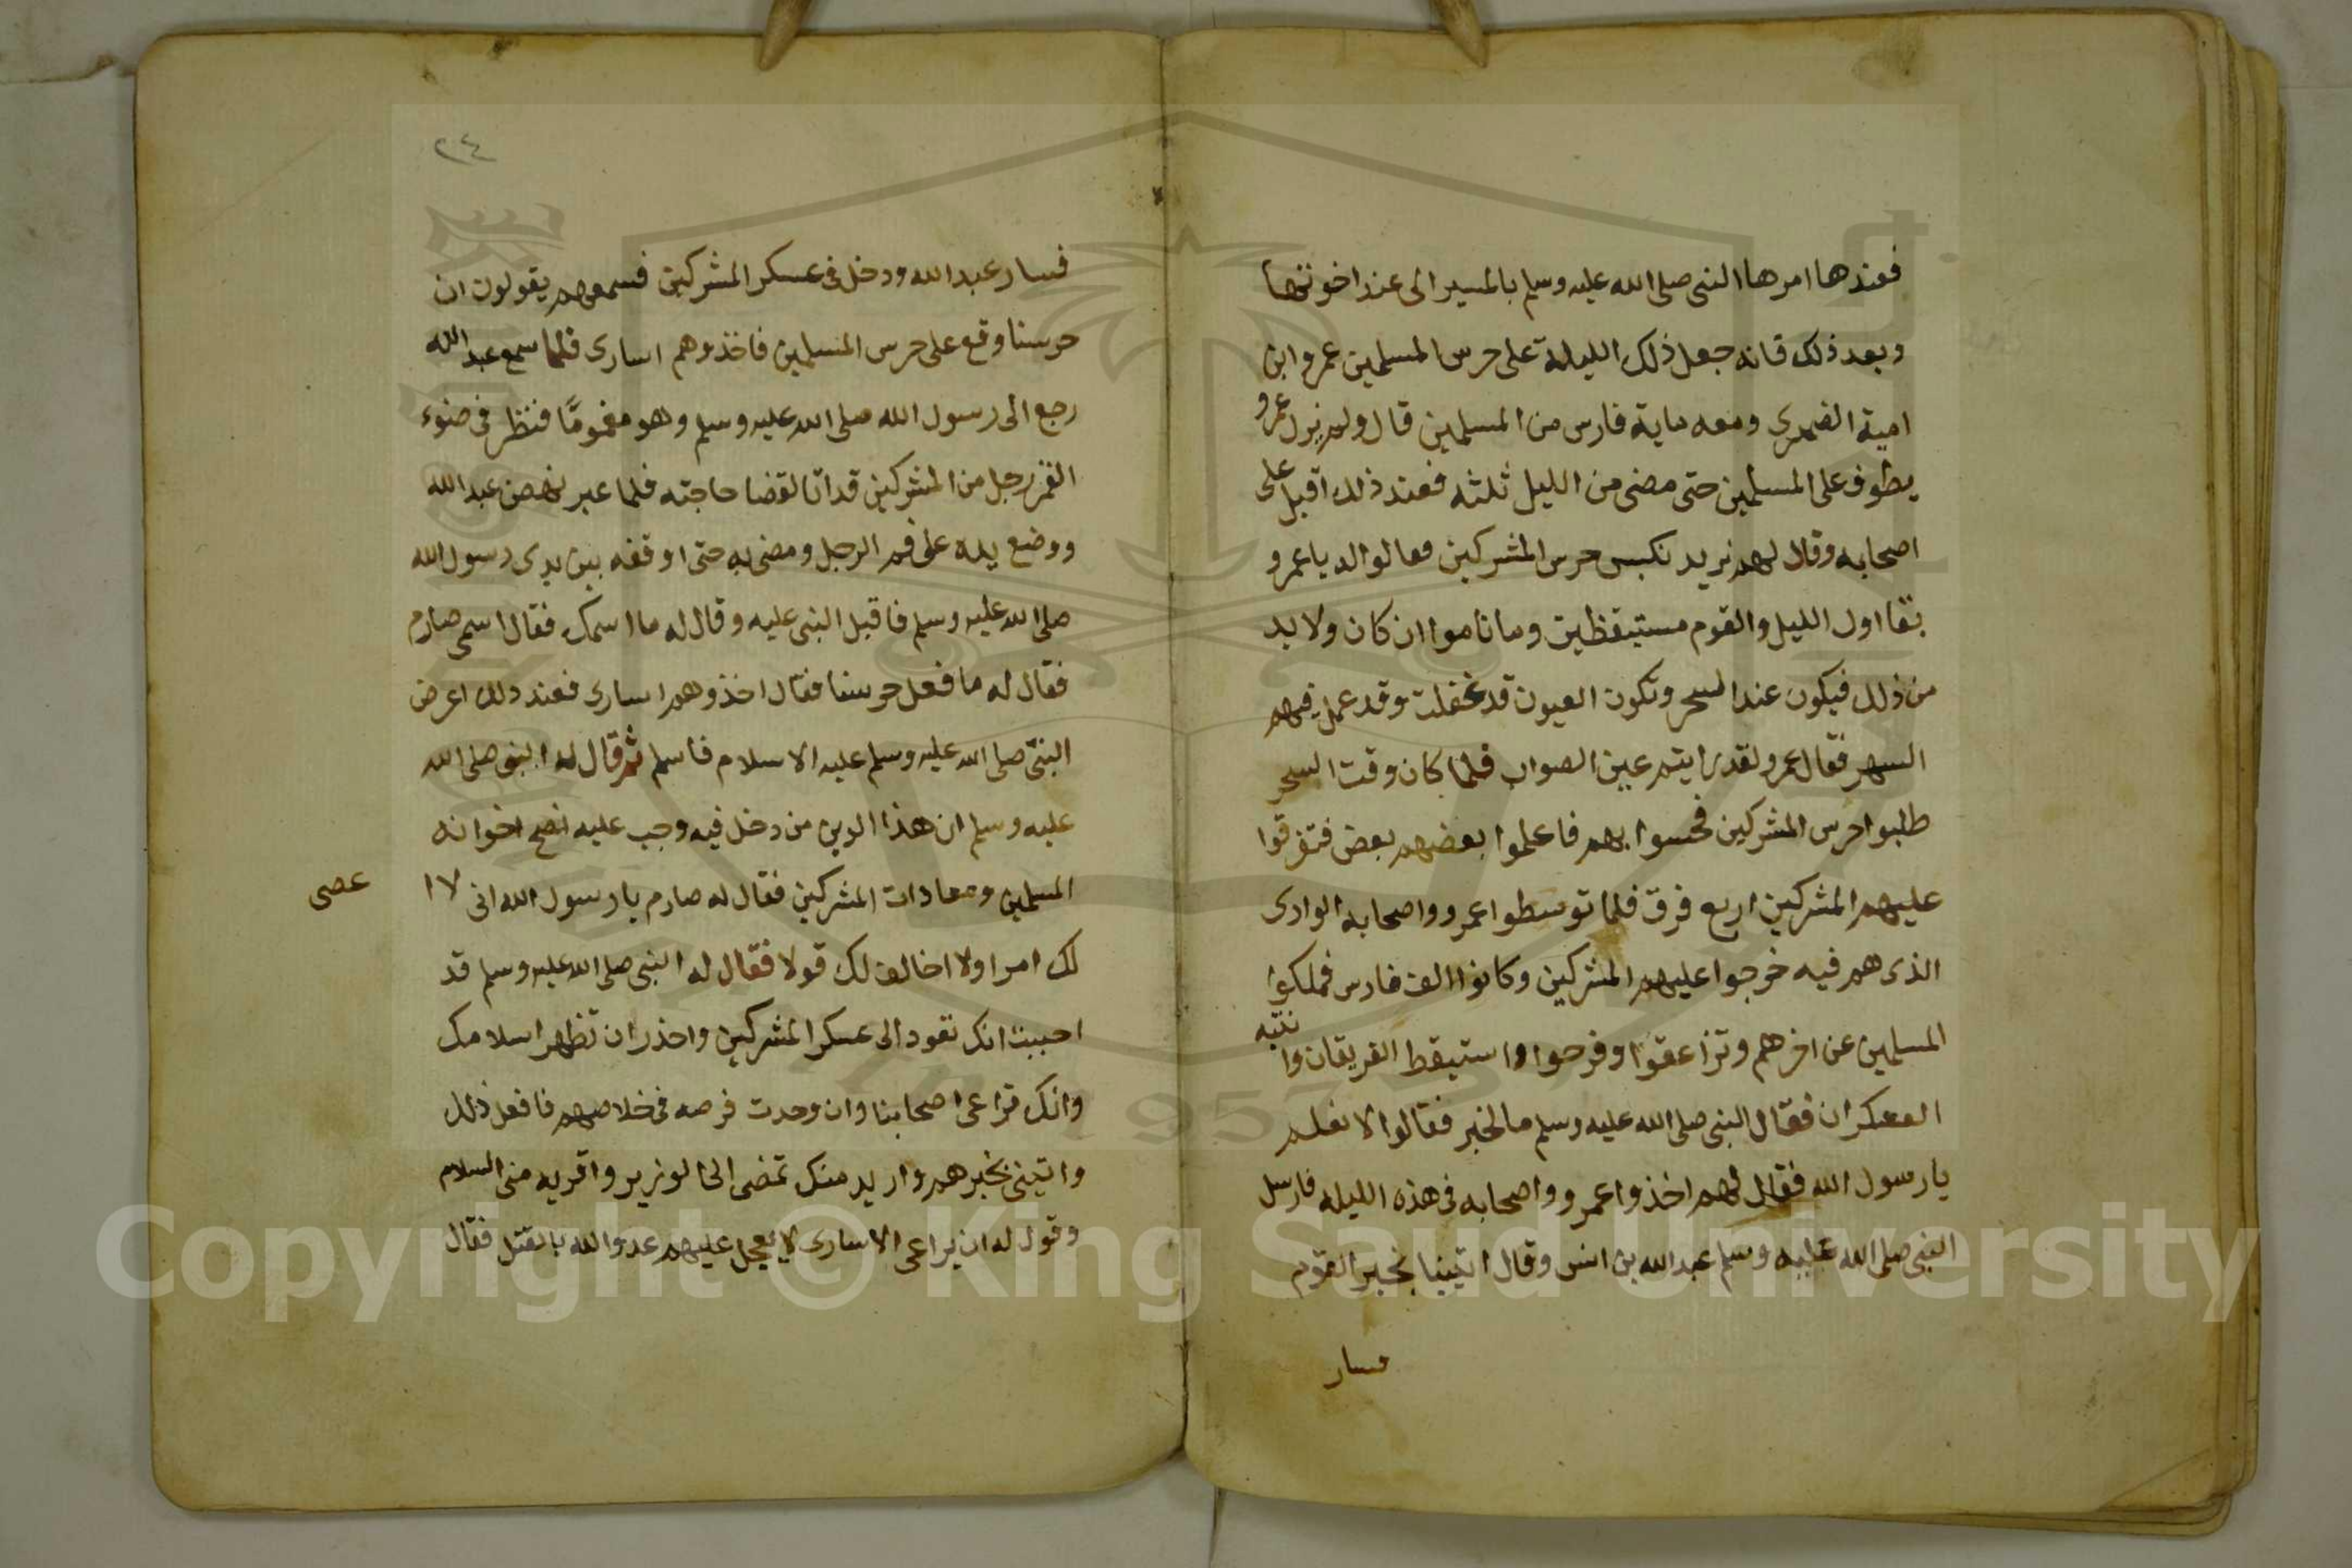 فعندها امرها النبى صلى الله عليه وسلم بالمسير الى عند اخوتها
وبعد ذلك فانه جعل ذلك الليلة على حرس المسلمين عمرو ابن
امية الضمرى ومعه ماية فارس من المسلمين قال ولم يزل عمرو
يطوف على المسلمين حتى مضى من الليل ثلثه فعند ذلك اقبل على
اصحابه وقال لهم نريد نكبس حرس المشركين فقالوا له يا عمرو
بقا اول الليل والقوم مستيقظين وما ناموا ان كان ولا بد
من ذلك فيكون عند السحر وتكون العيون قد غفلت وقد عمل فيهم
السهر فقال عمرو لقد رايتم عين الصواب فلما كان وقت السحر
طلبوا حرس المشركين فحسوا بهم فاعلموا بعضهم بعض فتفرقوا
عليهم المشركين اربع فرق فلما توسطوا عمرو واصحابه الوادى
الذى هم فيه خرجوا عليهم المشركين وكانوا الف فارس فملكوا
المسلمين عن اخرهم وتزاعقوا وفرحوا واستيقظ الفريقان وانتبه
العسكران فقال النبى صلى الله عليه وسلم ما الخبر فقالوا لا نعلم
يا رسول الله فقال لهم اخذوا عمرو واصحابه فى هذه الليله فارسل
النبى صلى الله عليه وسلم عبد الله بن انس وقال اتينا بخبر القوم
فسار
٢٤
فسار عبد الله ودخل فى عسكر المشركين فسمعهم يقولون ان
حرسنا وقع على حرس المسلمين فاخذوهم اسارى فلما سمع عبد الله
رجع الى رسول الله صلى الله عليه وسلم وهو مغمومًا فنظر فى ضوء
القمر رجل من المشركين قد اتا لقضا حاجته فلما عبر نهض عبد الله
ووضع يده على فم الرجل ومضى به حتى اوقفه بين يدى رسول الله
صلى الله عليه وسلم فاقبل النبى عليه وقال له ما اسمك فقال اسمى صارم
فقال له ما فعل حرسنا فقال اخذوهم اسارى فعند ذلك اعرض
النبى صلى الله عليه وسلم عليه الاسلام فاسلم ثم قال له النبى صلى الله
عليه وسلم ان هذا الدين من دخل فيه وجب عليه نصح اخوانه
المسلمين ومعادات المشركين فقال له صارم يا رسول الله انى لا ا
عصى
لك امرا ولا اخالف لك قولا فقال له النبى صلى الله عليه وسلم قد
احببت انك تعود الى عسكر المشركين واحذر ان تظهر اسلامك
وانك تراعى اصحابنا وان وجدت فرصه فى خلاصهم فافعل ذلك
واتينى بخبرهم واريد منك تمضى الى الوزير واقريه منى السلام
وقول له ان يراعى الاسارى لا يعجل عليهم عدو الله بالقتل فقال
Copyright © King Saud University